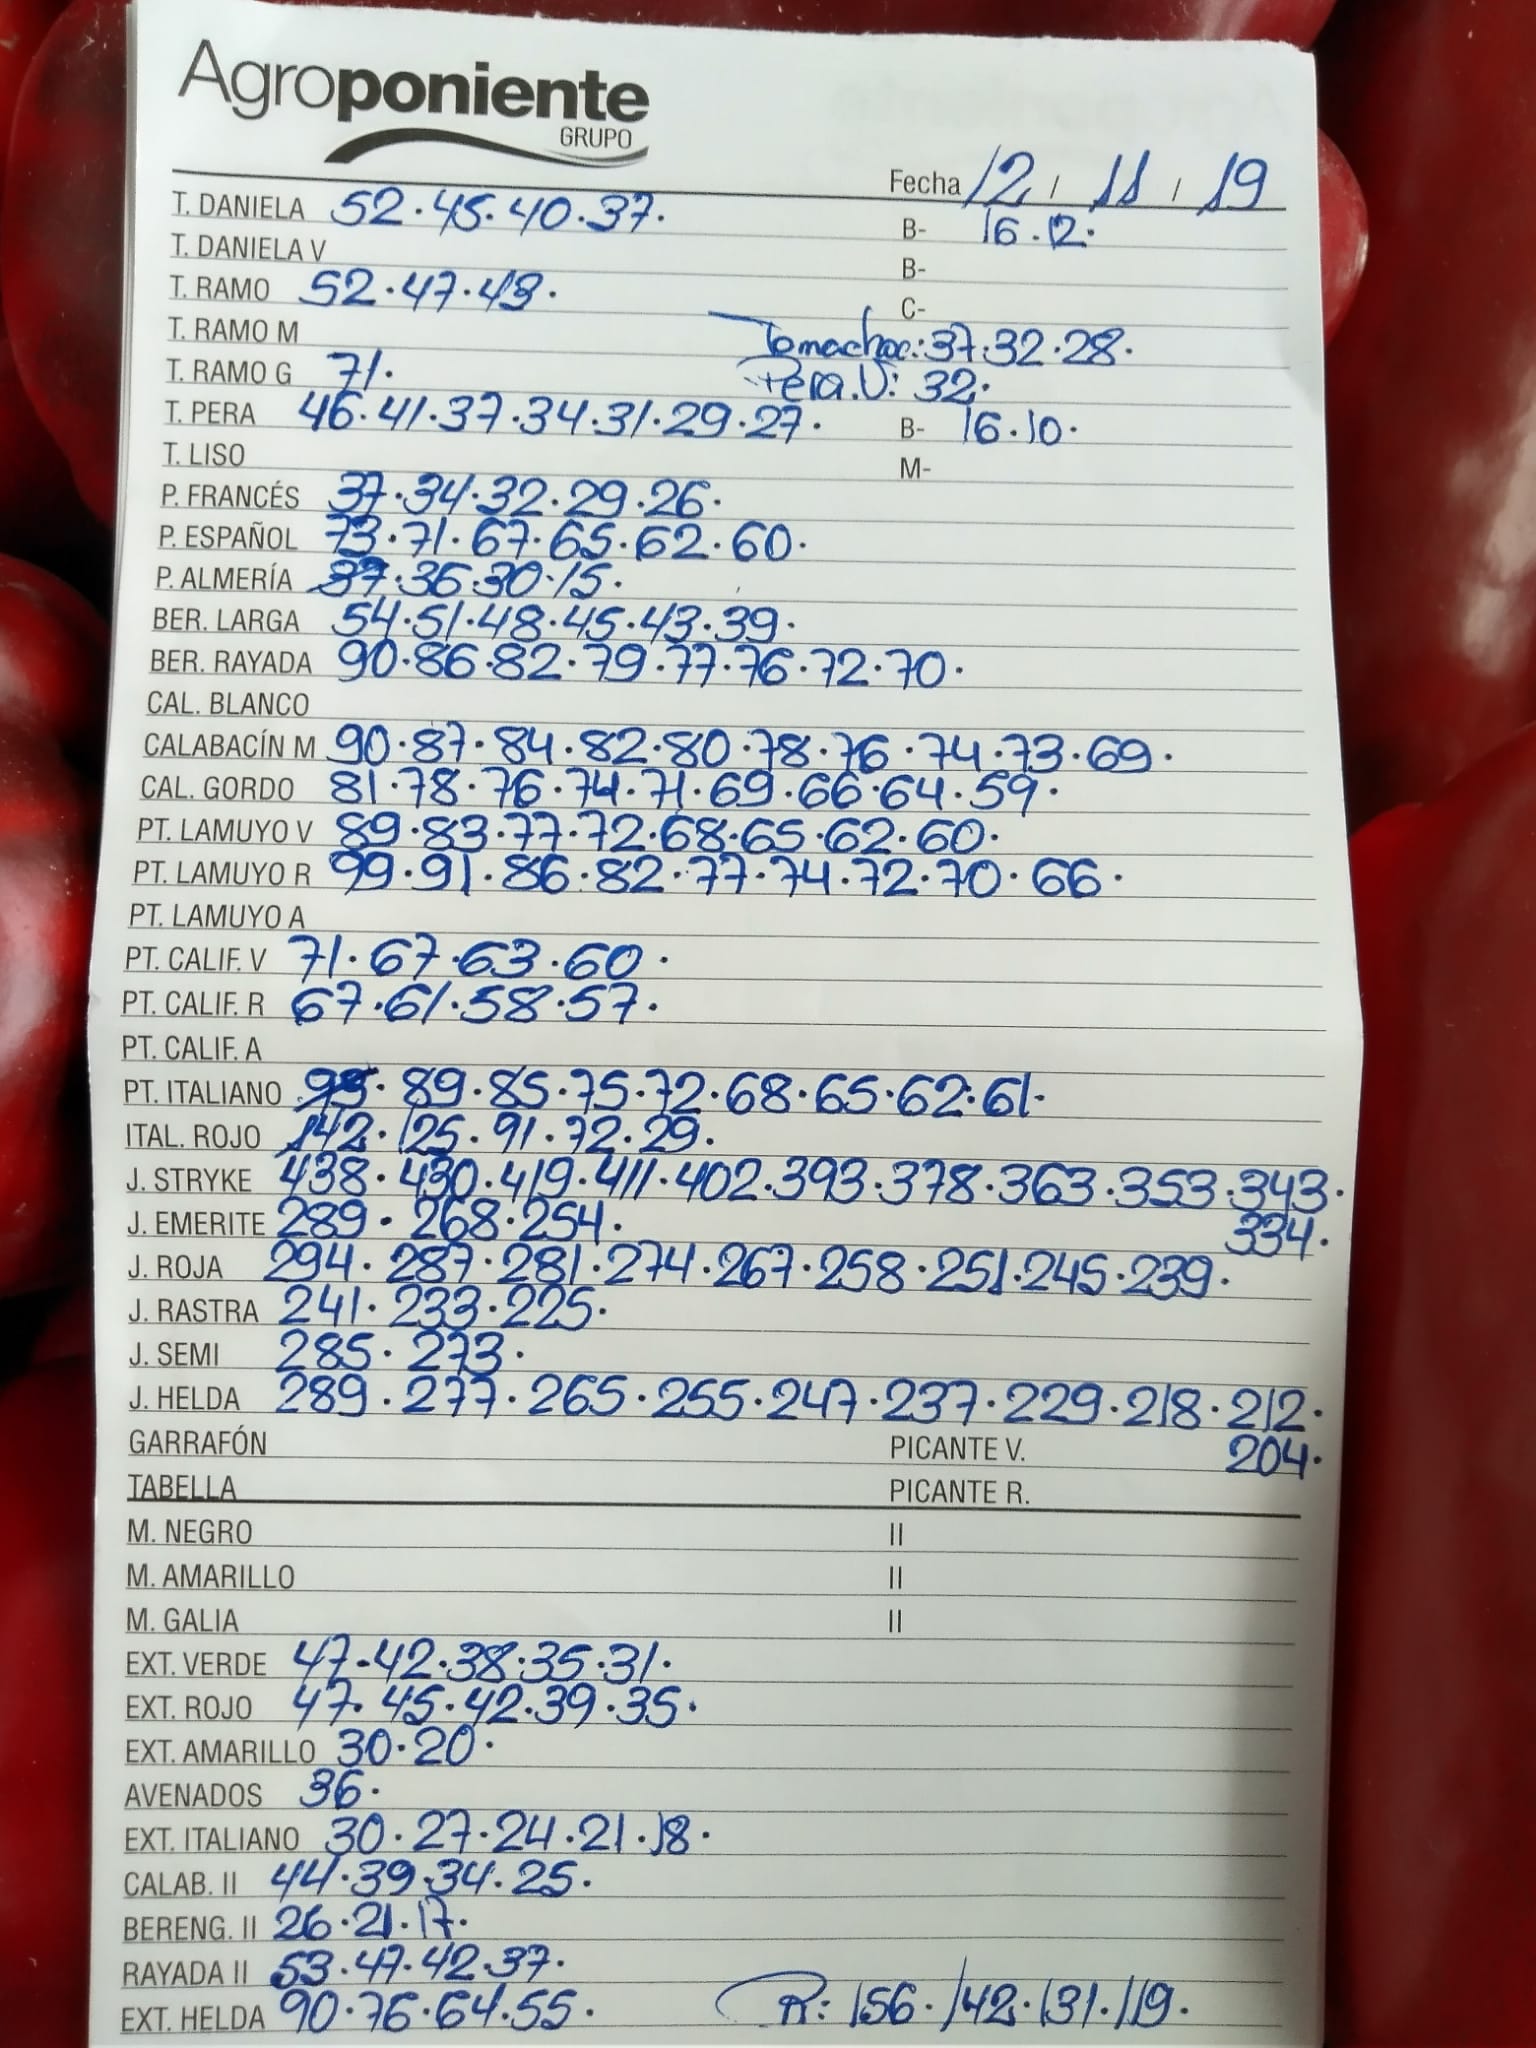 Agroponiente
GRUPO
Fecha 12 / 11 / 19
T. DANIELA 52.45.40.37. B- 16.12.
T. DANIELA V B-
T. RAMO 52.47.43. C-
T. RAMO M Tomachoc: 37.32.28.
T. RAMO G 71. Pera.V: 32.
T. PERA 46.41.37.34.31.29.27. B- 16.10.
T. LISO M-
P. FRANCÉS 37.34.32.29.26.
P. ESPAÑOL 73.71.67.65.62.60.
P. ALMERÍA 37.36.30.15.
BER. LARGA 54.51.48.45.43.39.
BER. RAYADA 90.86.82.79.77.76.72.70.
CAL. BLANCO
CALABACÍN M 90.87.84.82.80.78.76.74.73.69.
CAL. GORDO 81.78.76.74.71.69.66.64.59.
PT. LAMUYO V 89.83.77.72.68.65.62.60.
PT. LAMUYO R 99.91.86.82.77.74.72.70.66.
PT. LAMUYO A
PT. CALIF. V 71.67.63.60.
PT. CALIF. R 67.61.58.57.
PT. CALIF. A
PT. ITALIANO 89.85.75.72.68.65.62.61.
ITAL. ROJO 142.125.91.72.29.
J. STRYKE 438.430.419.411.402.393.378.363.353.343.
334.
J. EMERITE 289.268.254.
J. ROJA 294.287.281.274.267.258.251.245.239.
J. RASTRA 241.233.225.
J. SEMI 285.273.
J. HELDA 289.277.265.255.247.237.229.218.212.
204.
GARRAFÓN PICANTE V.
TABELLA PICANTE R.
M. NEGRO II
M. AMARILLO II
M. GALIA II
EXT. VERDE 47.42.38.35.31.
EXT. ROJO 47.45.42.39.35.
EXT. AMARILLO 30.20.
AVENADOS 36.
EXT. ITALIANO 30.27.24.21.18.
CALAB. II 44.39.34.25.
BERENG. II 26.21.17.
RAYADA II 53.47.42.37.
EXT. HELDA 90.76.64.55. R: 156.142.131.119.